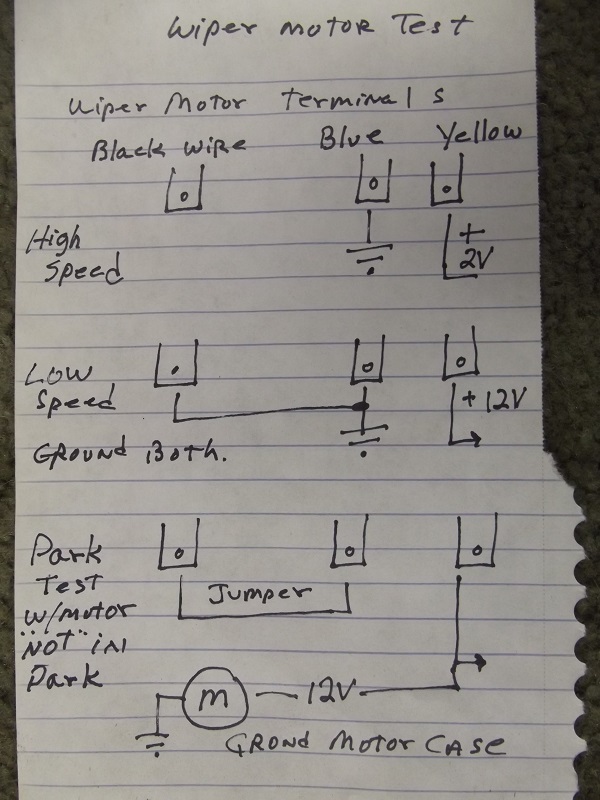 Wiper Motor Test
Wiper Motor Terminals
Black Wire Blue Yellow
High
Speed
+
2V
Low
Speed
+ 12V
Ground Both.
Park
Test
w/motor
"NOT" in
Park
Jumper
M
12V
GROND MOTOR CASE